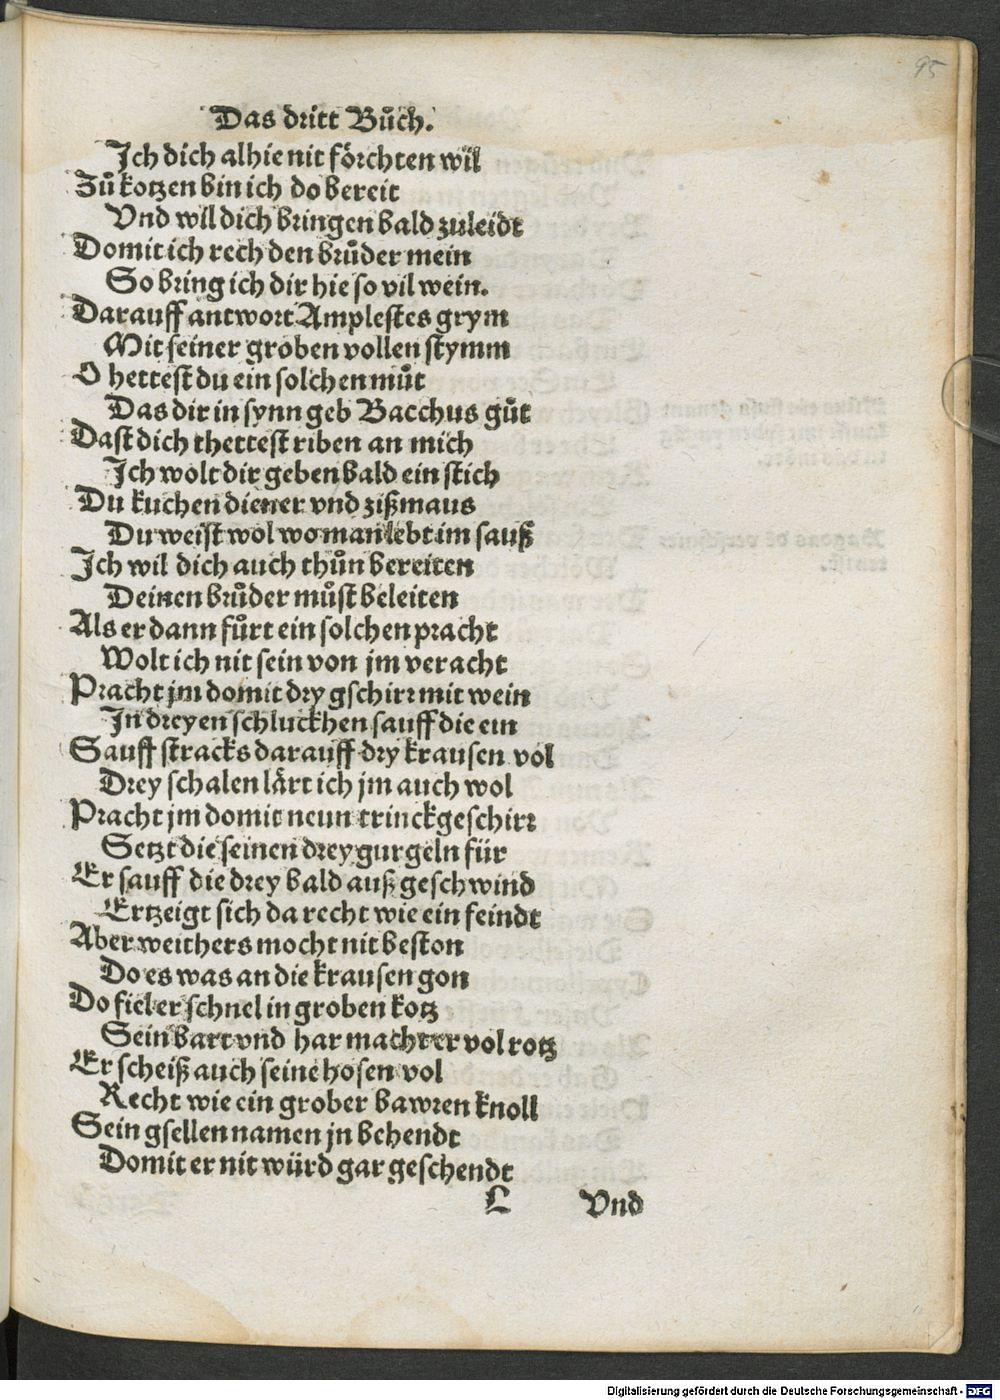 95
Das dritt Bůch.
Ich dich alhie nit förchten wil
Zů kotzen bin ich do bereit
Vnd wil dich bringen bald zuleidt
Domit ich rech den brůder mein
So bring ich dir hie so vil wein.
Darauff antwort Amplestes grym
Mit seiner groben vollen stymm
O hettest du ein solchen můt
Das dir in synn geb Bacchus gůt
Dast dich thettest riben an mich
Ich wolt dir geben bald ein stich
Du kuchen diener vnd zißmaus
Du weist wol wo man lebt im sauß
Ich wil dich auch thůn bereiten
Deinen brůder můst beleiten
Als er dann fůrt ein solchen pracht
Wolt ich nit sein von jm veracht
Pracht jm domit dry gschirr mit wein
In dreyen schluckhen sauff die ein
Sauff stracks darauff dry krausen vol
Drey schalen lärt ich jm auch wol
Pracht jm domit neun trinckgeschirr
Setzt die seinen drey gurgeln für
Er sauff die drey bald auß geschwind
Ertzeigt sich da recht wie ein feindt
Aber weithers mocht nit beston
Do es was an die krausen gon
Do fiel er schnel in groben kotz
Sein bart vnd har macht er vol rotz
Er scheiß auch seine hosen vol
Recht wie ein grober bawren knoll
Sein gsellen namen jn behendt
Domit er nit würd gar geschendt
L Vnd
Digitalisierung gefördert durch die Deutsche Forschungsgemeinschaft - DFG